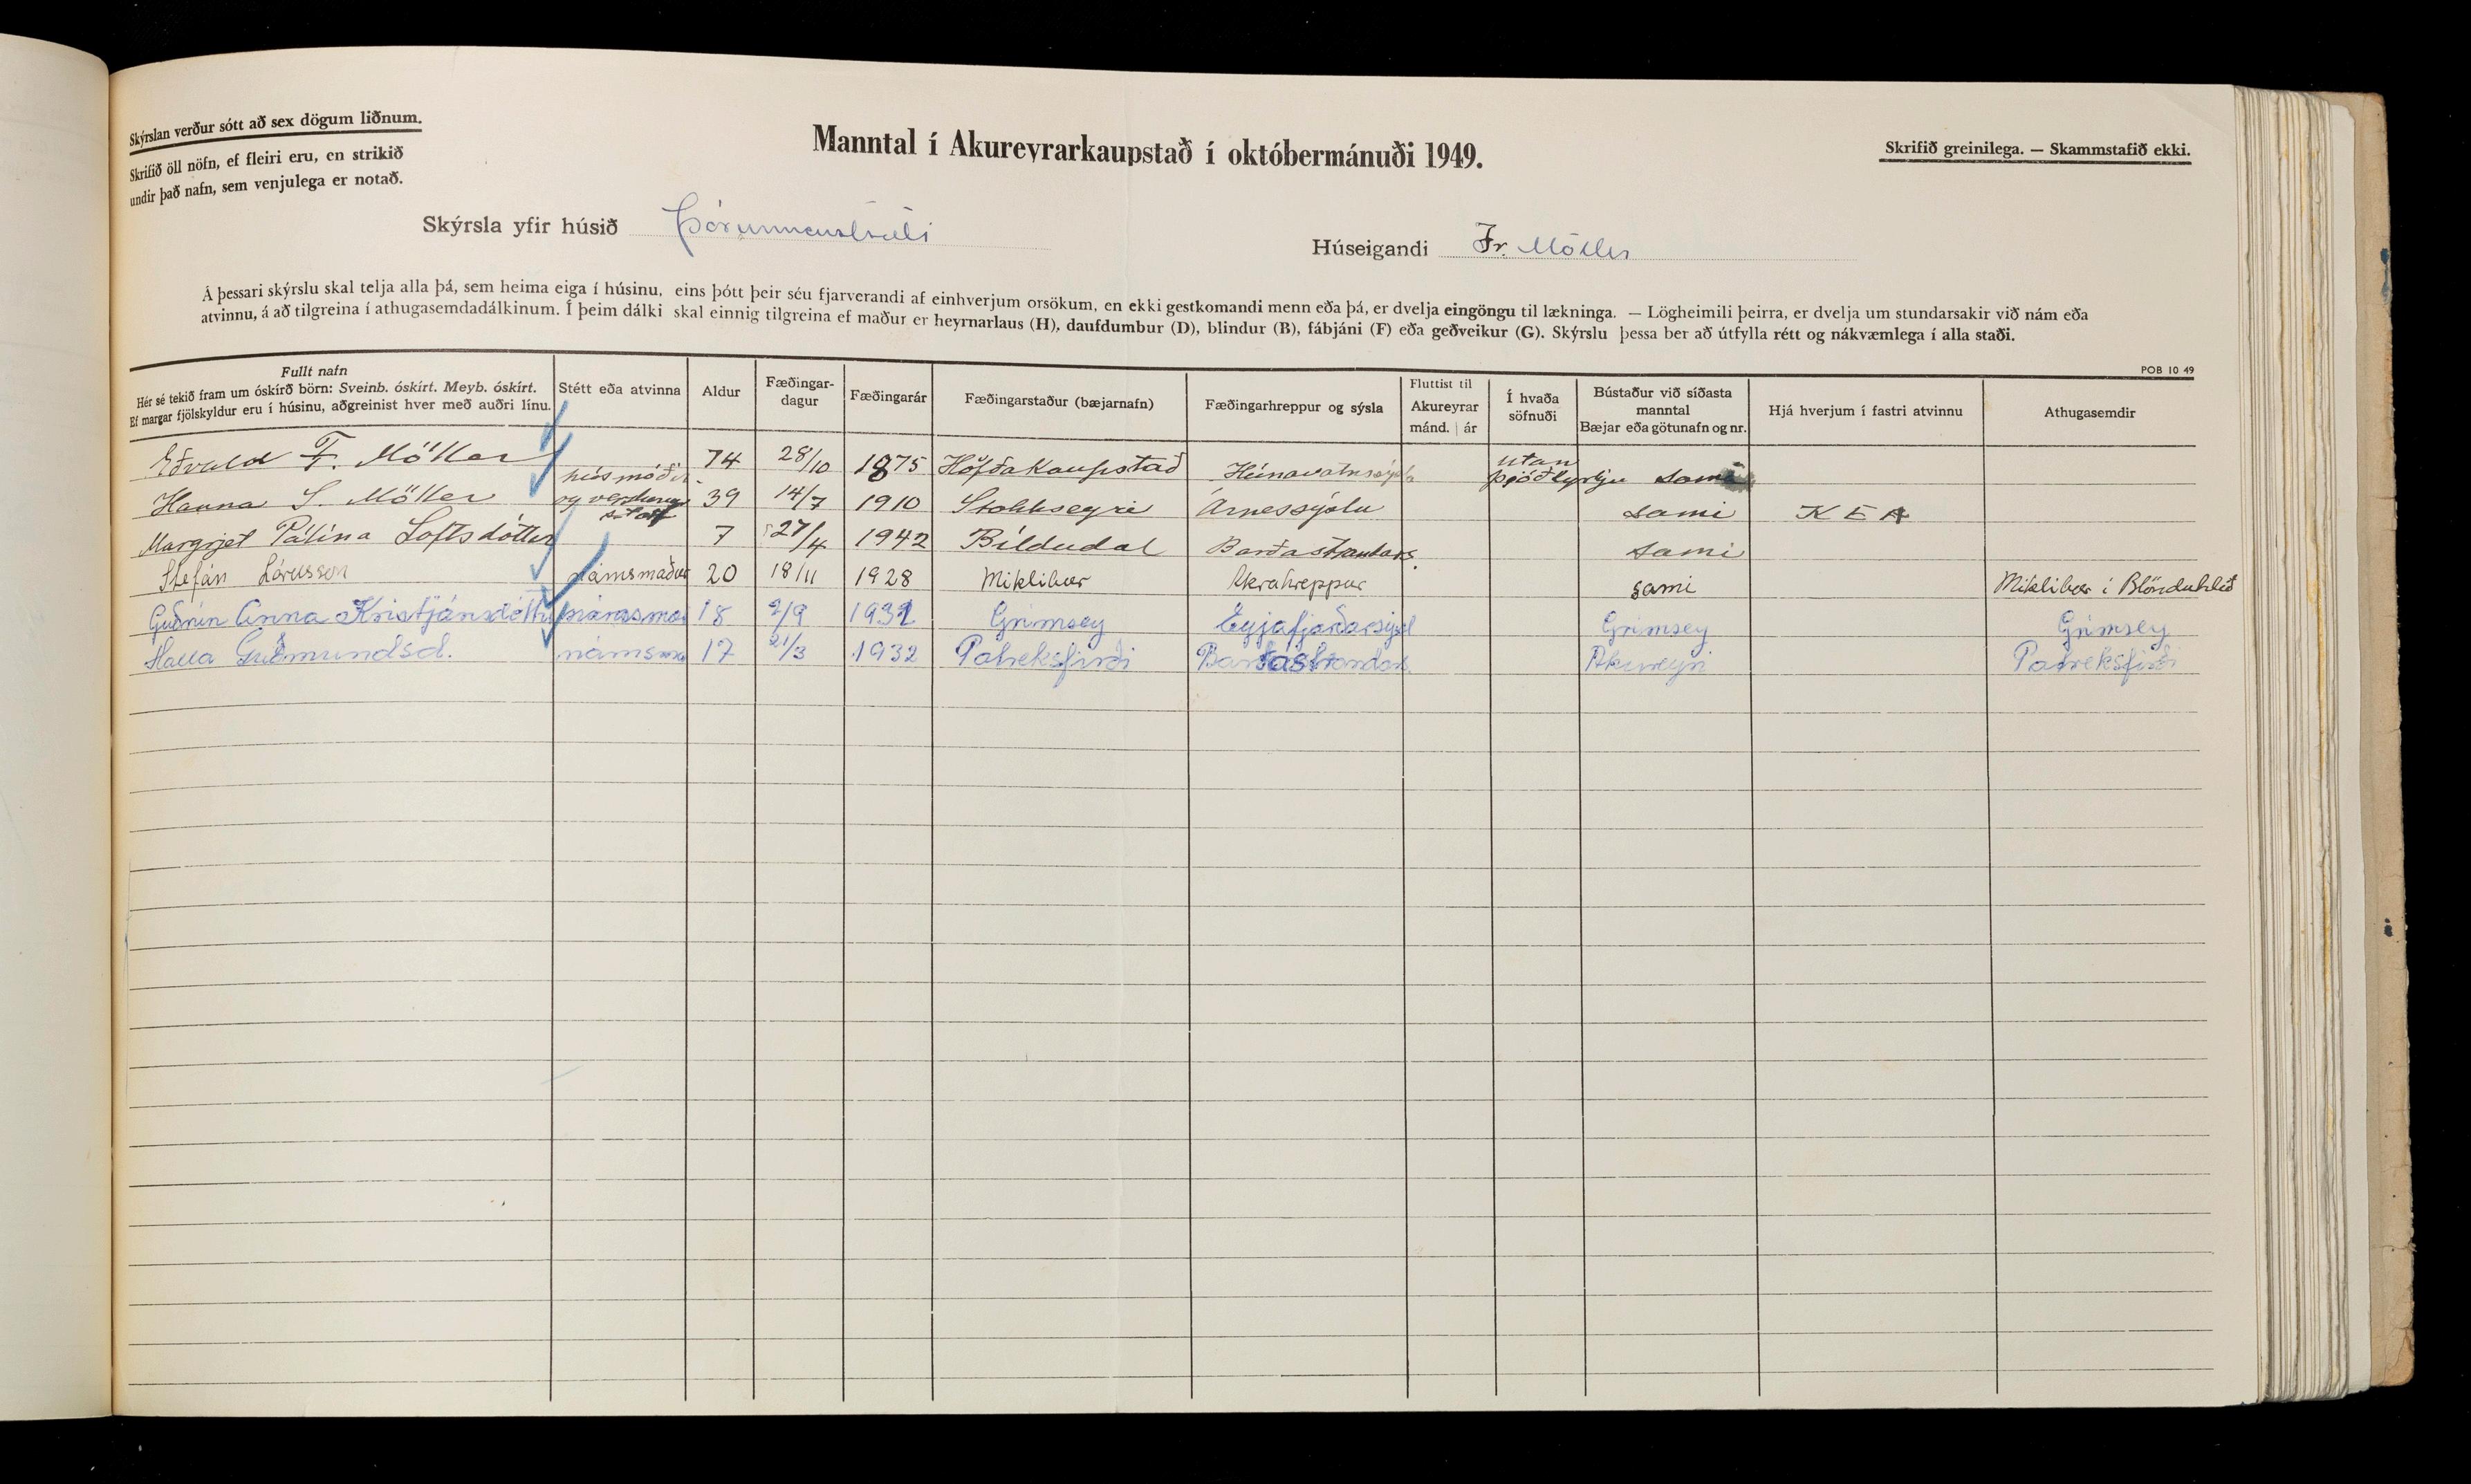 Skýrslan verður sótt að sex dögum liðnum.
Skrifið öll nöfn, ef fleiri eru, en strikið
undir það nafn, sem venjulega er notað.
Manntal í Akureyrarkaupstað í októbermánuði 1949.
Skrifið greinilega. — Skammstafið ekki.
Skýrsla yfir húsið Þórunnarstræti
Húseigandi Fr. Möller
Á þessari skýrslu skal telja alla þá, sem heima eiga í húsinu, eins þótt þeir séu fjarverandi af einhverjum orsökum, en ekki gestkomandi menn eða þá, er dvelja eingöngu til lækninga. — Lögheimili þeirra, er dvelja um stundarsakir við nám eða
atvinnu, á að tilgreina í athugasemdadálkinum. Í þeim dálki skal einnig tilgreina ef maður er heyrnarlaus (H), daufdumbur (D), blindur (B), fábjáni (F) eða geðveikur (G). Skýrslu þessa ber að útfylla rétt og nákvæmlega í alla staði.
POB 10 49
Fullt nafn
Hér sé tekið fram um óskírð börn: Sveinb. óskírt. Meyb. óskírt.
Ef margar fjölskyldur eru í húsinu, aðgreinist hver með auðri línu.
Stétt eða atvinna
Aldur
Fæðingar-
dagur
Fæðingarár
Fæðingarstaður (bæjarnafn)
Fæðingarhreppur og sýsla
Fluttist til
Akureyrar
mánd. | ár
Í hvaða
söfnuði
Bústaður við síðasta
manntal
Bæjar eða götunafn og nr.
Hjá hverjum í fastri atvinnu
Athugasemdir
Eðvald F. Möller 74 28/10 1875 Höfðakaupstað Húnavatnssýsla utan þjóðkyrkju sami
Hanna S. Möller húsmóðir og 39 14/7 1910 Stokkseyri Árnessýslu sami KEA
Margrjet Pálína Loftsdóttir 7 27/4 1942 Bíldudal Barðastrandars. sami
Stefán Lárusson námsmaður 20 18/11 1928 Miklibær Akrahreppur sami Miklibær í Blönduhlíð
Guðrún Anna Kristjánsdóttir námsmær 18 2/9 1931 Grímsey Eyjafjarðarsýsl Grímsey Grímsey
Halla Guðmundsd. námsmær 17 21/3 1932 Patreksfirði Barðastrandars Akureyri Patreksfirði